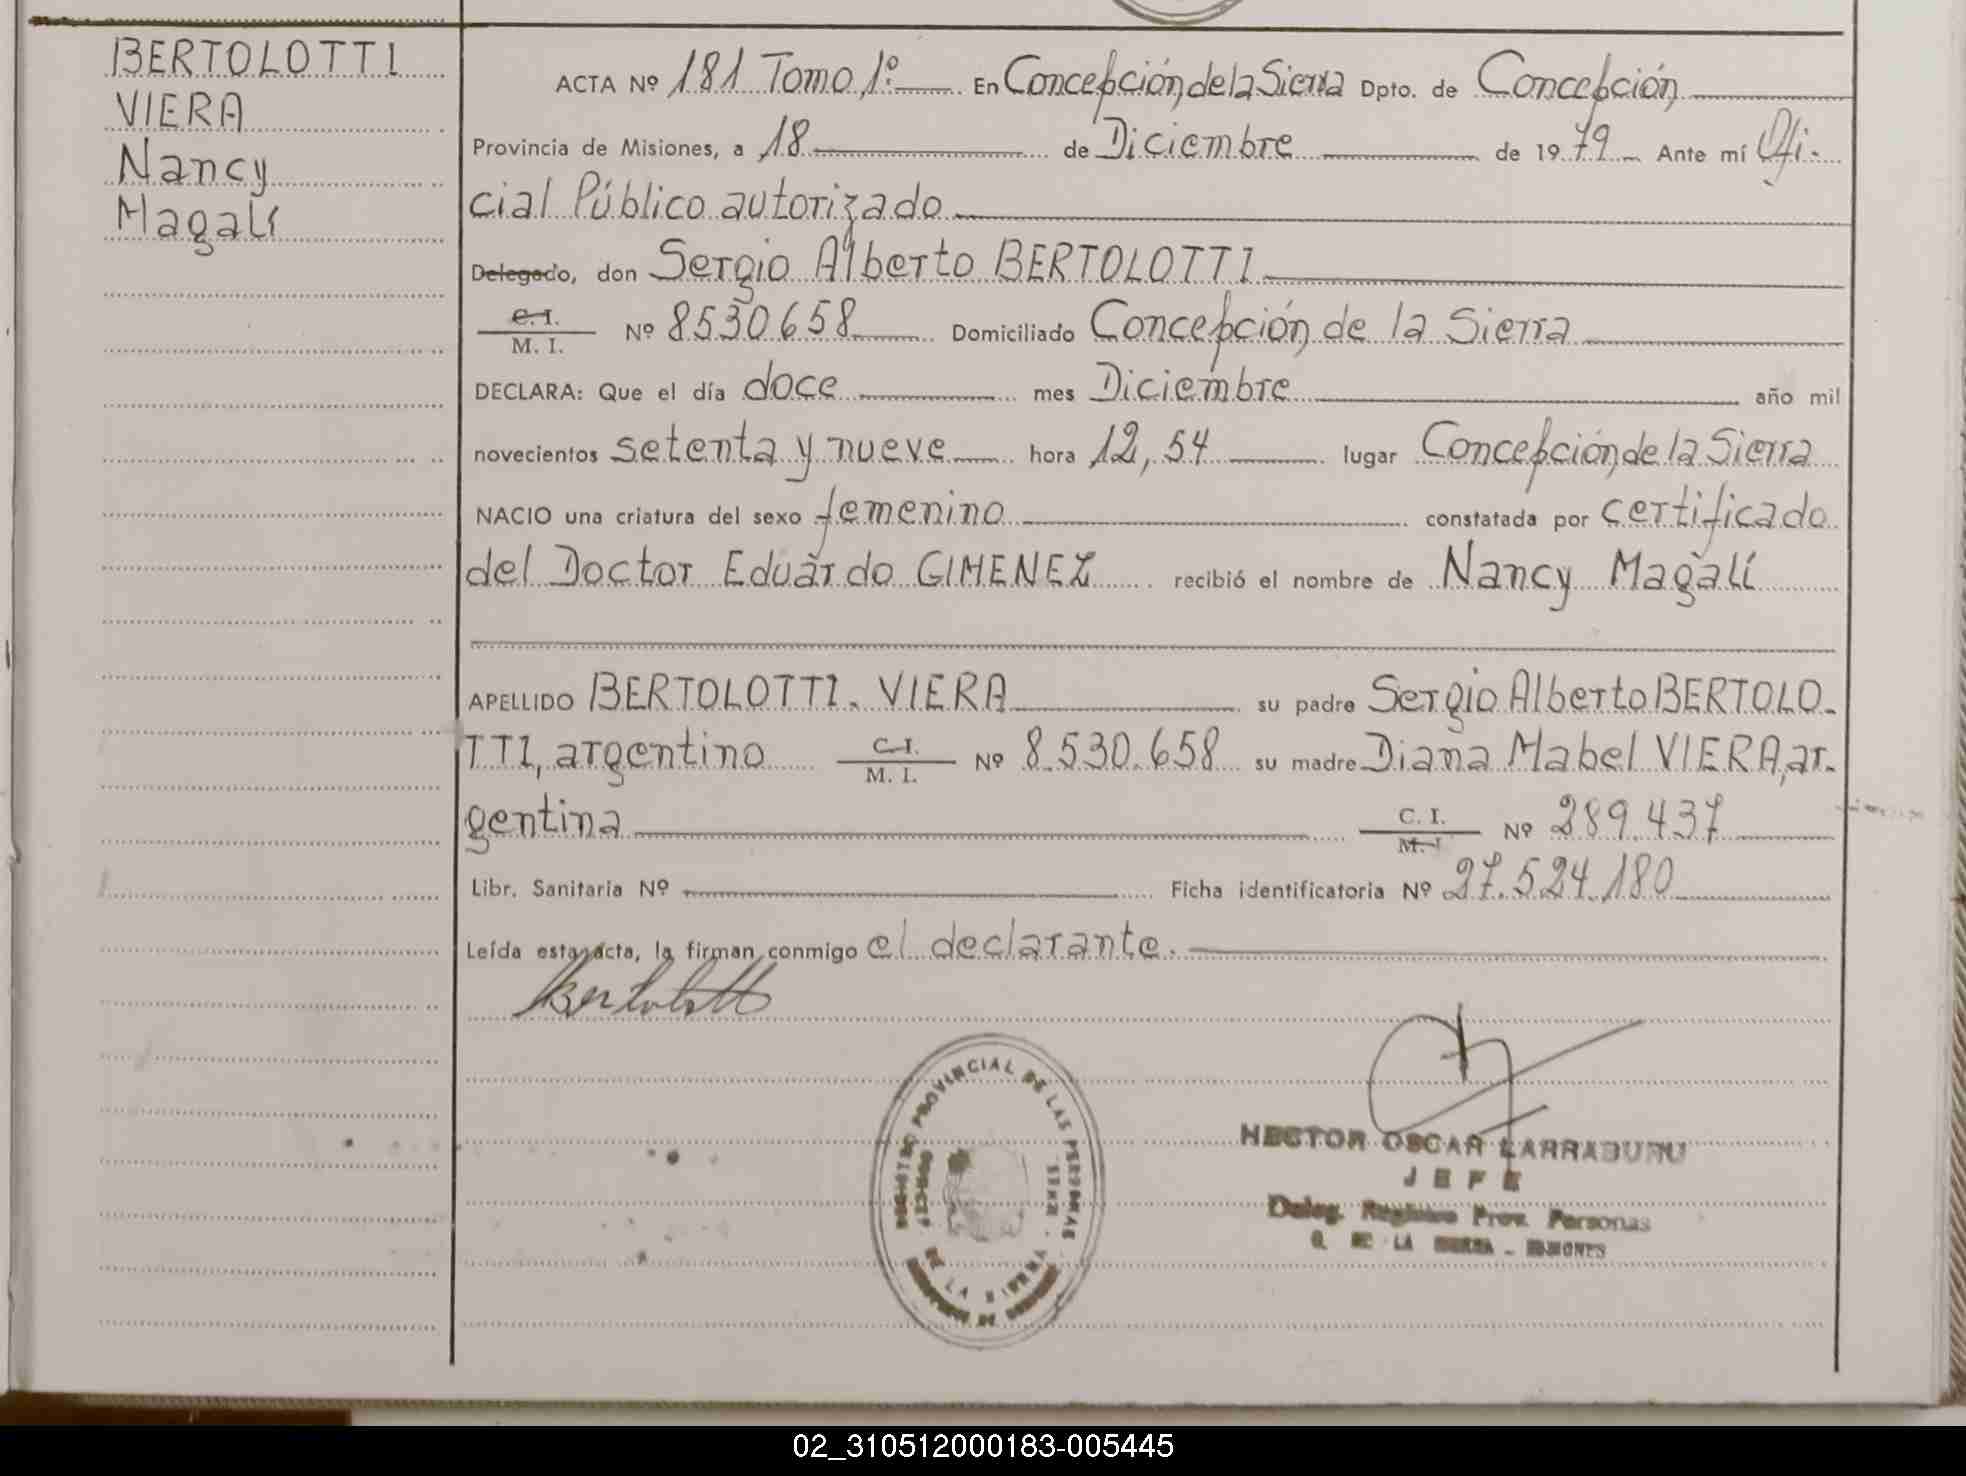 BERTOLOTTI
VIERA
Nancy
Magalí
ACTA Nº 181 Tomo 1º En Concepción de la Sierra Dpto. de Concepción
Provincia de Misiones, a 18 de Diciembre de 1979 Ante mí Ofi-
cial Público autorizado
Delegado, don Sergio Alberto BERTOLOTTI
C. I.
M. I. Nº 8530.658 Domiciliado Concepción de la Sierra
DECLARA: Que el día doce mes Diciembre año mil
novecientos setenta y nueve hora 12,54 lugar Concepción de la Sierra
NACIO una criatura del sexo femenino constatada por certificado
del Doctor Eduardo GIMENEZ recibió el nombre de Nancy Magalí
APELLIDO BERTOLOTTI. VIERA su padre Sergio Alberto BERTOLO-
TTI, argentino C. I. M. I. Nº 8.530.658 su madre Diana Mabel VIERA, ar-
gentina C. I. M. I Nº 289.437
Libr. Sanitaria Nº Ficha identificatoria Nº 27.524.180
Leída esta acta, la firman conmigo el declarante.
Bertolotti
REGISTRO PROVINCIAL DE LAS PERSONAS
DE LA SIERRA
HECTOR OSCAR LARRABURU
JEFE
Deleg. Registro Prov. Personas
C. DE LA SIERRA - MISIONES
02_310512000183-005445